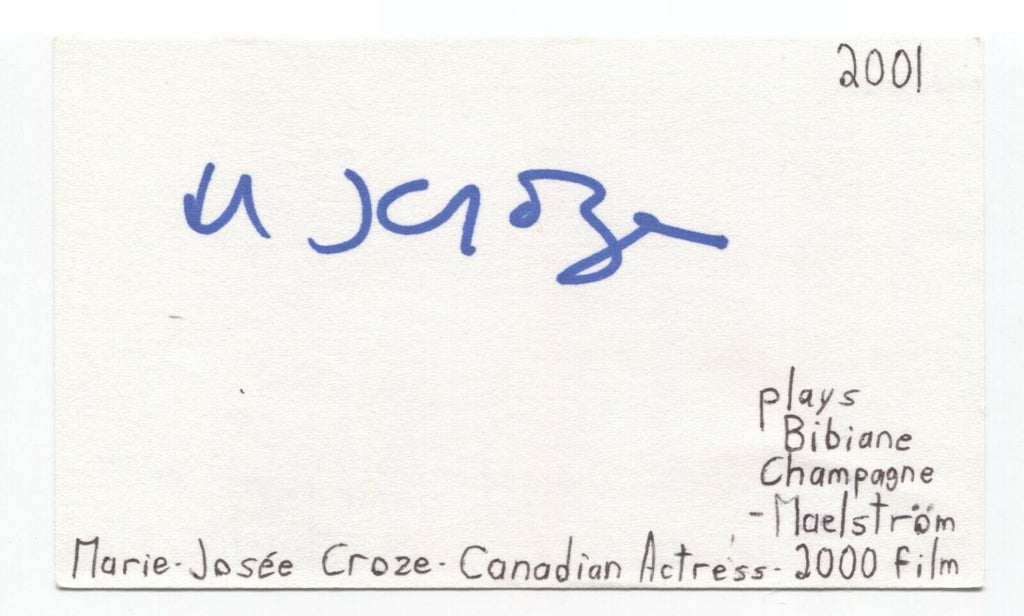 2001
M J Croze
plays
Bibiane
Champagne
- Maelström
Marie-Josée Croze - Canadian Actress - 2000 film